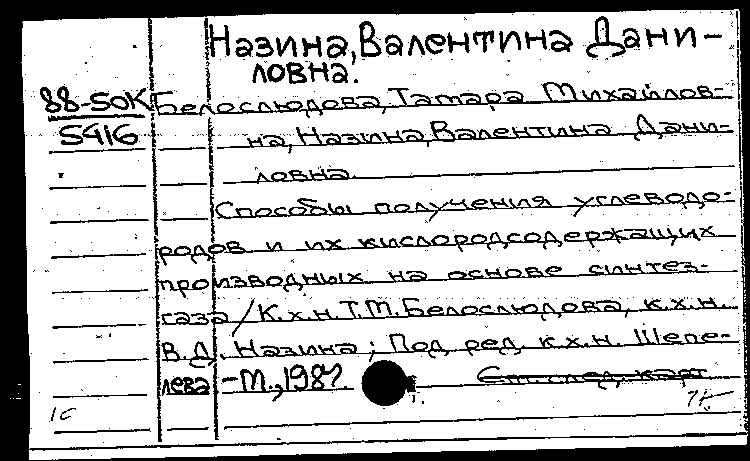 Назина, Валентина Дани-
ловна.
88-50К Белослюдова, Тамара Михайлов-
5416 на, Назина, Валентина Дани-
ловна.
Способы получения углеводо-
родов и их кислородсодержащих
производных на основе синтез-
газа / К.х.н. Т.М. Белослюдова, к.х.н.
В.Д. Назина; Под ред. к.х.н. Шепе-
лева -М., 1987.
См. след. карт
1с